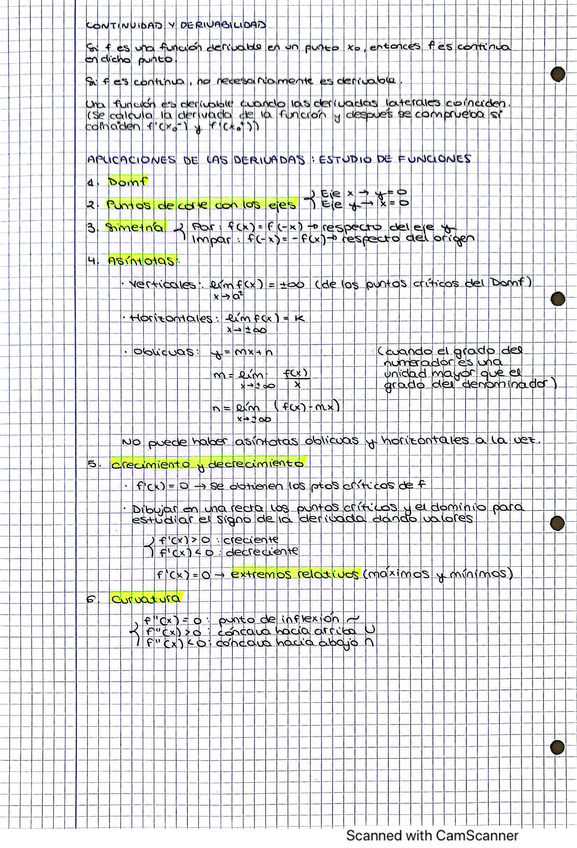 CONTINUIDAD Y DERIVABILIDAD
Si f es una función derivable en un punto x₀, entonces f es continua
en dicho punto.
Si f es continua, no necesariamente es derivable.
Una función es derivable cuando las derivadas laterales coinciden.
(Se calcula la derivada de la función y después se comprueba si
coinciden f'(x₀⁻) y f'(x₀⁺))
APLICACIONES DE LAS DERIVADAS: ESTUDIO DE FUNCIONES
1. Domf
2. Puntos de corte con los ejes { Eje x → y=0
Eje y → x=0
3. Simetría { Par: f(x) = f(-x) → respecto del eje y
Impar: f(-x) = -f(x) → respecto del origen
4. Asíntotas:
· Verticales: lím f(x) = ±∞ (de los puntos críticos del Domf)
x→a
· Horizontales: lím f(x) = K
x→±∞
· Oblicuas: y = mx+n (cuando el grado del
numerador es una
m = lím f(x)/x unidad mayor que el
x→±∞ grado del denominador)
n = lím (f(x)-mx)
x→±∞
No puede haber asíntotas oblicuas y horizontales a la vez.
5. Crecimiento y decrecimiento
· f'(x) = 0 → se obtienen los ptos críticos de f
· Dibujar en una recta los puntos críticos y el dominio para
estudiar el signo de la derivada dando valores
{ f'(x)>0: creciente
f'(x)<0: decreciente
f'(x)=0 → extremos relativos (máximos y mínimos)
6. Curvatura
{ f''(x) = 0: punto de inflexión ~
f''(x)>0: cóncava hacia arriba ∪
f''(x)<0: cóncava hacia abajo ∩
Scanned with CamScanner